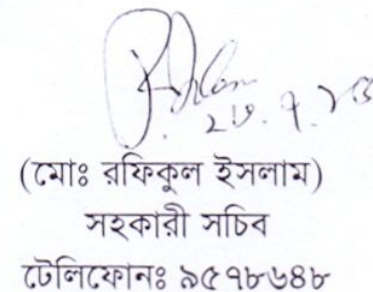 (মোঃ রফিকুল ইসলাম)
সহকারী সচিব
টেলিফোনঃ ৯৫৭৮৬৪৮